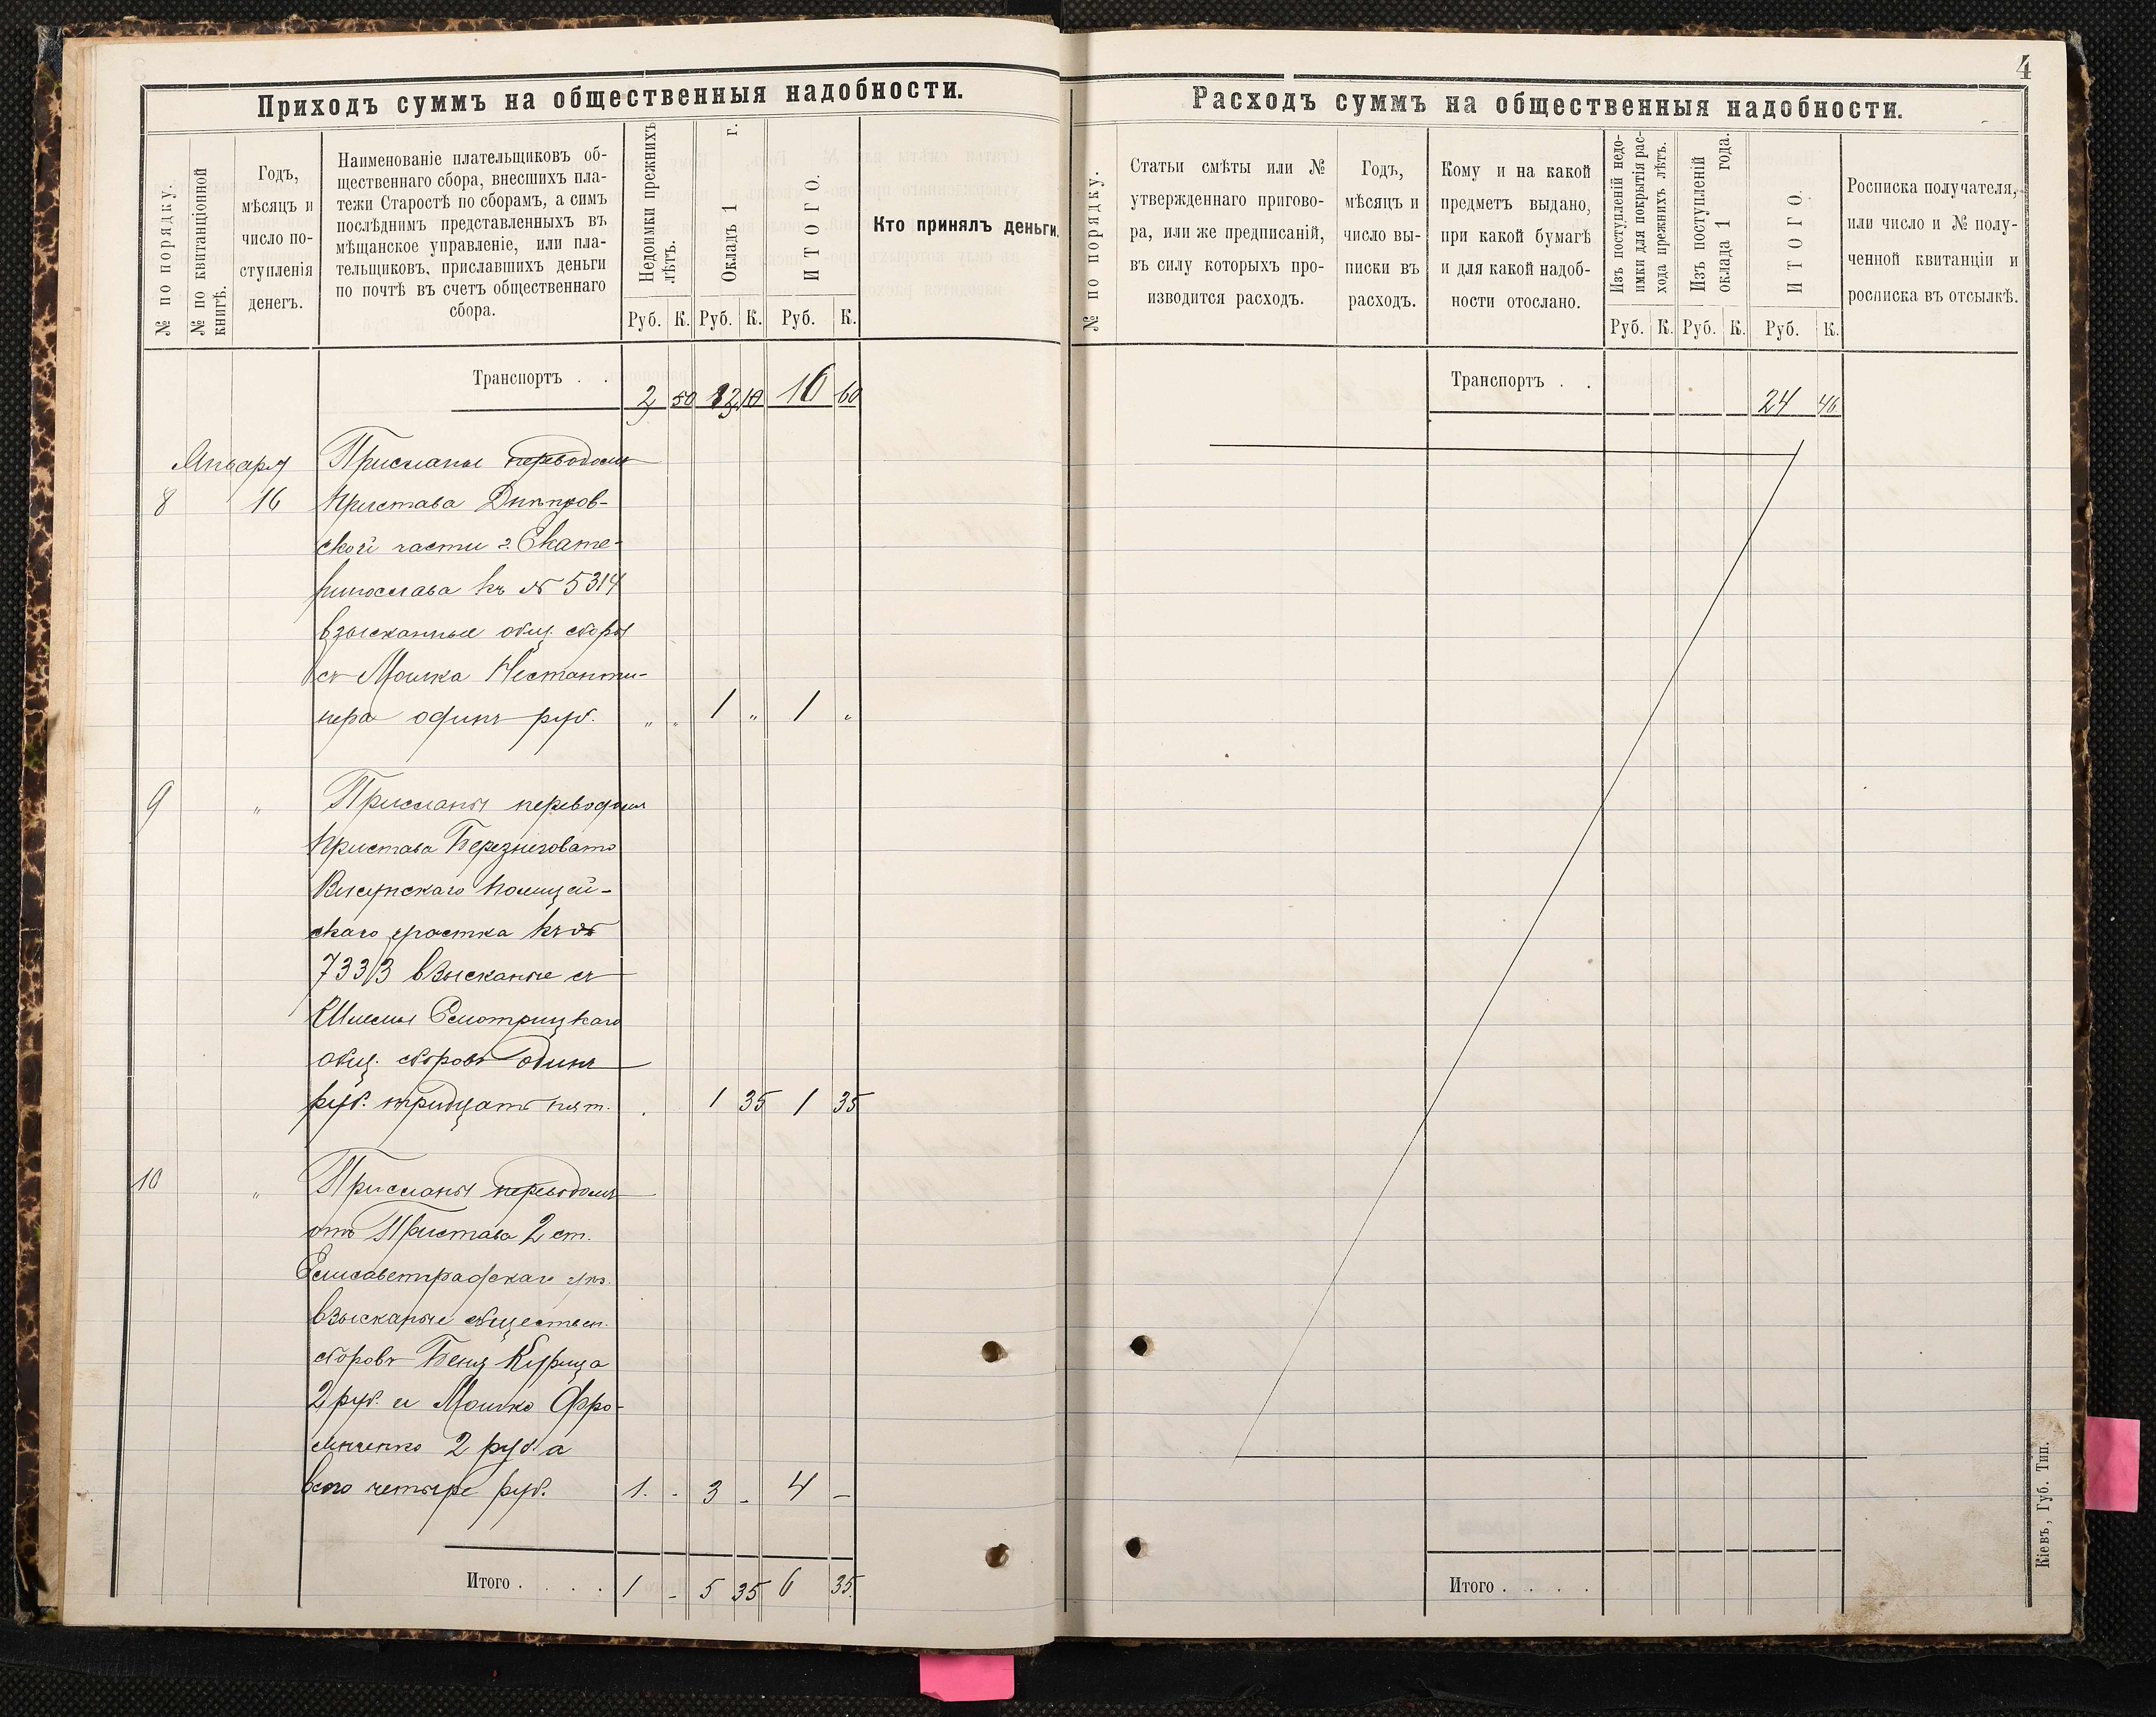 4
Приходъ суммъ на общественныя надобности.
№ по порядку.
№ по квитанціонной
книгѣ.
Годъ,
мѣсяцъ и
число по-
ступленія
денегъ.
Наименованіе плательщиковъ об-
щественнаго сбора, внесшихъ пла-
тежи Старостѣ по сборамъ, а симъ
послѣднимъ представленныхъ въ
мѣщанское управленіе, или пла-
тельщиковъ, приславшихъ деньги
по почтѣ въ счетъ общественнаго
сбора.
Недоимки прежнихъ
лѣтъ.
Окладъ 1 г.
ИТОГО.
Руб. К. Руб. К. Руб. К.
Кто принялъ деньги.
Транспортъ . .
2 50 10 16 60
Января Присланы переводомъ
8 16 Пристава Днѣпров-
ской части г. Екате-
ринослава къ № 5314
взысканные общ. сборы
съ Мошка
нера одинъ руб. „ „ 1 „ 1 „
9 „ Присланы переводомъ
Пристава Березниговато
Висунскаго Полицей-
скаго участка къ №
733/3 взысканые съ
Шлемы Смотрицкаго
общ. сборовъ одинъ
руб. тридцать пят. 1 35 1 35
10 „ Присланы переводомъ
отъ Пристава 2 ст.
Елисаветградскаго
взысканые обществен.
сборовъ Беня Курица
2 руб. и Мошко Фро-
2 руб. а
всего четыре руб. 1 - 3 - 4 -
Итого . . . . 1 - 5 35 6 35
Расходъ суммъ на общественныя надобности.
№ по порядку.
Статьи смѣты или №
утвержденнаго пригово-
ра, или же предписаній,
въ силу которыхъ про-
изводится расходъ.
Годъ,
мѣсяцъ и
число вы-
писки въ
расходъ.
Кому и на какой
предметъ выдано,
при какой бумагѣ
и для какой надоб-
ности отослано.
Изъ поступленій недо-
имки для покрытія рас-
хода прежнихъ лѣтъ.
Изъ поступленій
оклада 1 года.
ИТОГО.
Руб. К. Руб. К. Руб. К.
Росписка получателя,
или число и № полу-
ченной квитанціи и
росписка въ отсылкѣ.
Транспортъ . .
24 46
Итого . . . .
Кіевъ, Губ. Тип.